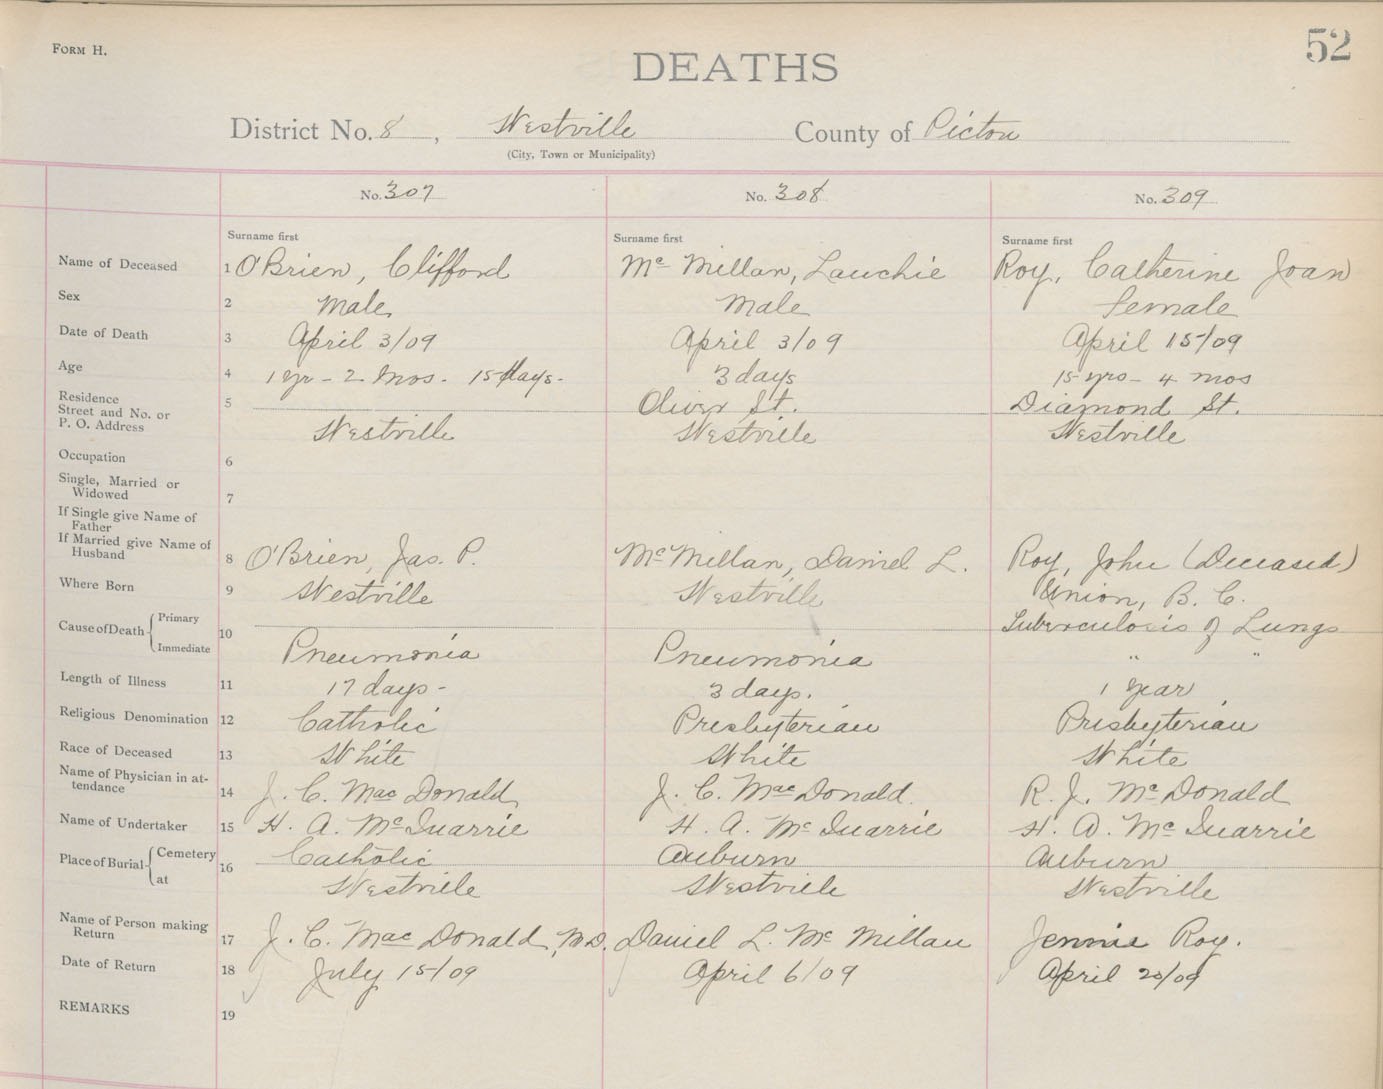 FORM H.
52
DEATHS
District No. 8, Westville County of Pictou
(City, Town or Municipality)
No. 307 No. 308 No. 309
Surname first Surname first Surname first
Name of Deceased 1 O'Brien, Clifford Mc Millan, Lauchie Roy, Catherine Joan
Sex 2 Male Male Female
Date of Death 3 April 3/09 April 3/09 April 15/09
Age 4 1 yr - 2 mos. 15 days - 3 days 15 yrs - 4 mos
Residence 5 Oliver St. Diamond St.
Street and No. or
P. O. Address Westville Westville Westville
Occupation 6
Single, Married or
Widowed 7
If Single give Name of
Father
If Married give Name of
Husband 8 O'Brien, Jas. P. McMillan, Daniel L. Roy, John (Deceased)
Where Born 9 Westville Westville Union, B. C.
Cause of Death Primary 10 Tuberculosis of Lungs
Immediate Pneumonia Pneumonia " "
Length of Illness 11 17 days - 3 days. 1 year
Religious Denomination 12 Catholic Presbyterian Presbyterian
Race of Deceased 13 White White White
Name of Physician in at-
tendance 14 J. C. MacDonald J. C. MacDonald R. J. McDonald
Name of Undertaker 15 H. A. McQuarrie H. A. McQuarrie H. A. McQuarrie
Place of Burial Cemetery 16 Catholic Auburn Auburn
at Westville Westville Westville
Name of Person making
Return 17 J. C. MacDonald, M.D. Daniel L. Mc Millan Jennie Roy.
Date of Return 18 July 15/09 April 6/09 April 20/09
REMARKS 19